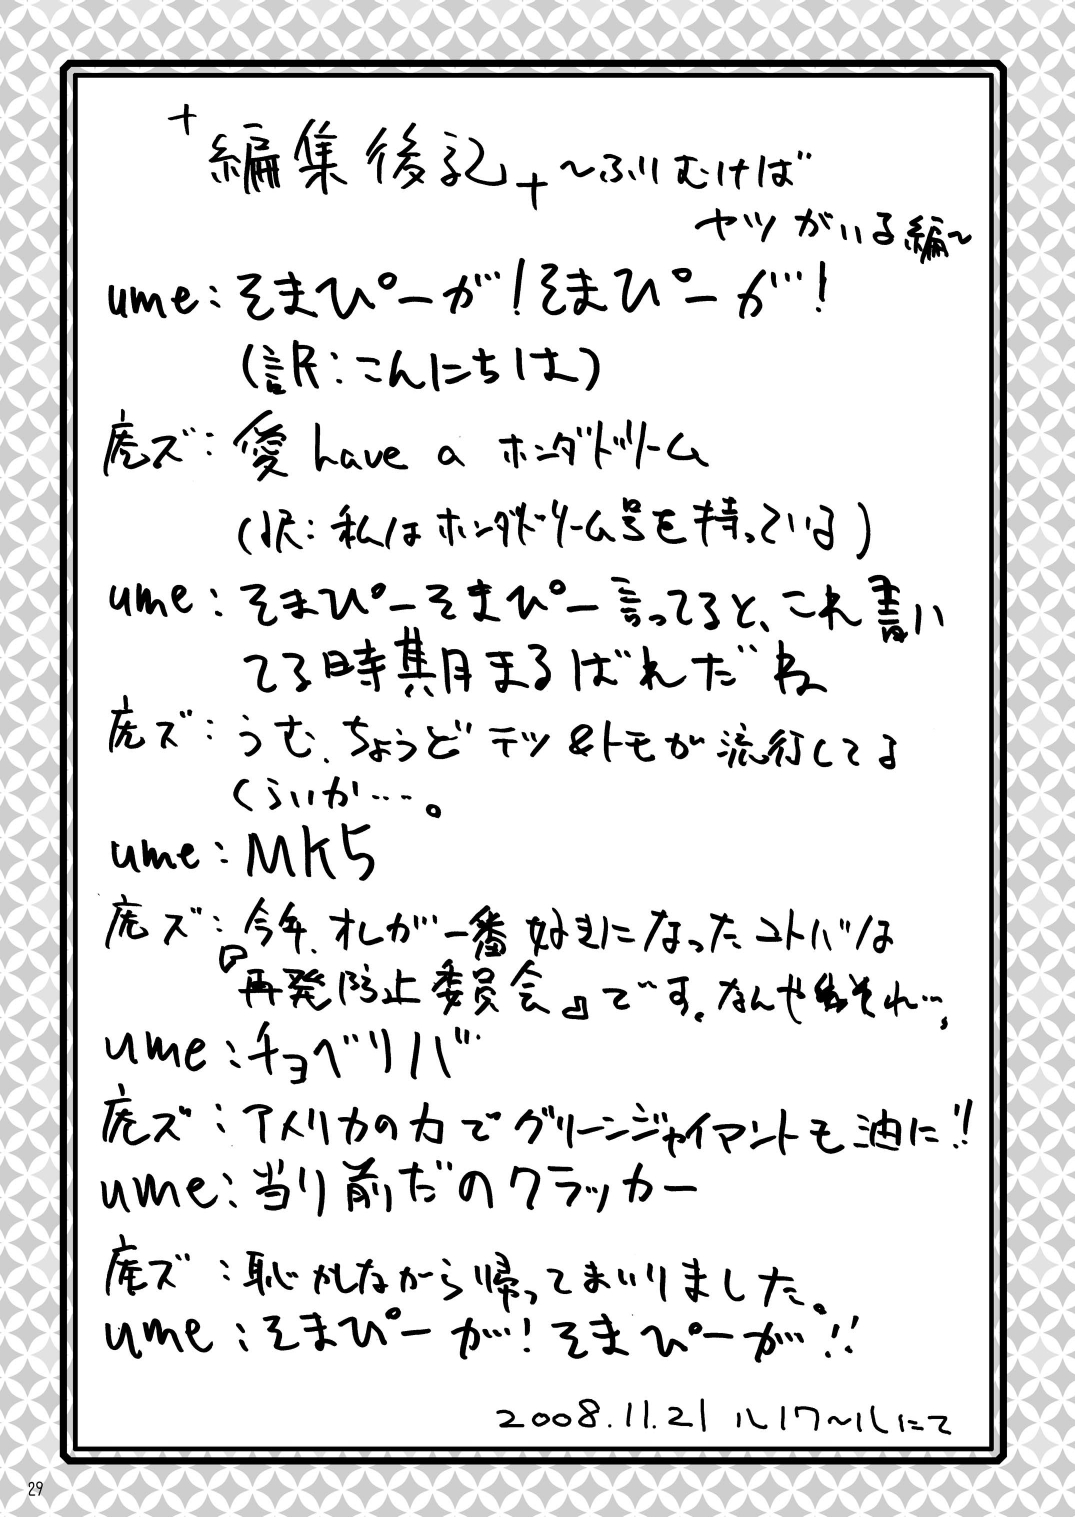 +編集後記+ ～ふりむけば
ヤツがいる編～
ume:そまぴーが!そまぴーが!
(訳:こんにちは)
虎ズ:愛 have a ホンダドリーム
(訳:私はホンダドリーム号を持っている)
ume:そまぴーそまぴー言ってると、これ書い
てる時期まるばれだね
虎ズ:うむ、ちょうどテツ&トモが流行してる
くらいか…。
ume:MK5
虎ズ:今年、オレが一番好きになったコトバは
『再発防止委員会』です。なんやそれ…。
ume:チョベリバ
虎ズ:アメリカの力でグリーンジャイアントも油に!!
ume:当り前だのクラッカー
虎ズ:恥かしながら帰ってまいりました。
ume:そまぴーが!そまぴーが!!
2008.11.21 ルノワ～ルにて
29